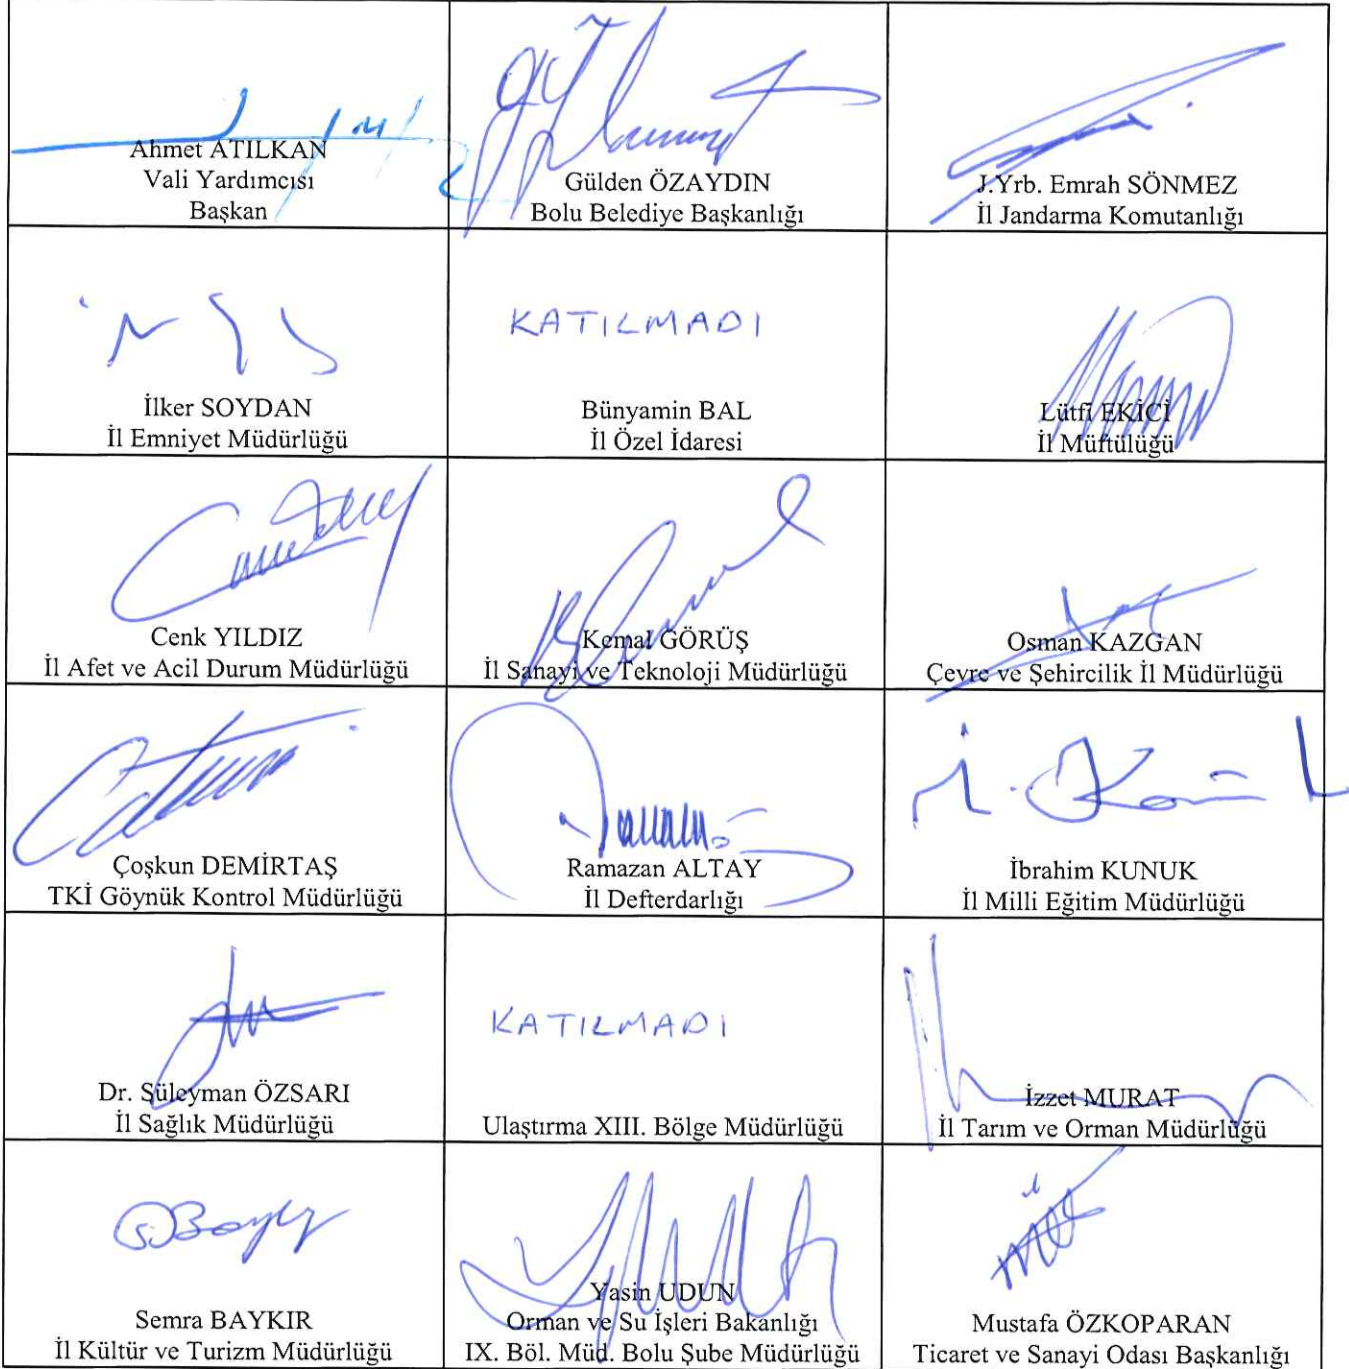 Ahmet ATILKAN
Vali Yardımcısı
Başkan
Gülden ÖZAYDIN
Bolu Belediye Başkanlığı
J.Yrb. Emrah SÖNMEZ
İl Jandarma Komutanlığı
İlker SOYDAN
İl Emniyet Müdürlüğü
KATILMADI
Bünyamin BAL
İl Özel İdaresi
Lütfi EKİCİ
İl Müftülüğü
Cenk YILDIZ
İl Afet ve Acil Durum Müdürlüğü
Kemal GÖRÜŞ
İl Sanayi ve Teknoloji Müdürlüğü
Osman KAZGAN
Çevre ve Şehircilik İl Müdürlüğü
Çoşkun DEMİRTAŞ
TKİ Göynük Kontrol Müdürlüğü
Ramazan ALTAY
İl Defterdarlığı
İbrahim KUNUK
İl Milli Eğitim Müdürlüğü
Dr. Süleyman ÖZSARI
İl Sağlık Müdürlüğü
KATILMADI
Ulaştırma XIII. Bölge Müdürlüğü
İzzet MURAT
İl Tarım ve Orman Müdürlüğü
Semra BAYKIR
İl Kültür ve Turizm Müdürlüğü
Yasin UDUN
Orman ve Su İşleri Bakanlığı
IX. Böl. Müd. Bolu Şube Müdürlüğü
Mustafa ÖZKOPARAN
Ticaret ve Sanayi Odası Başkanlığı